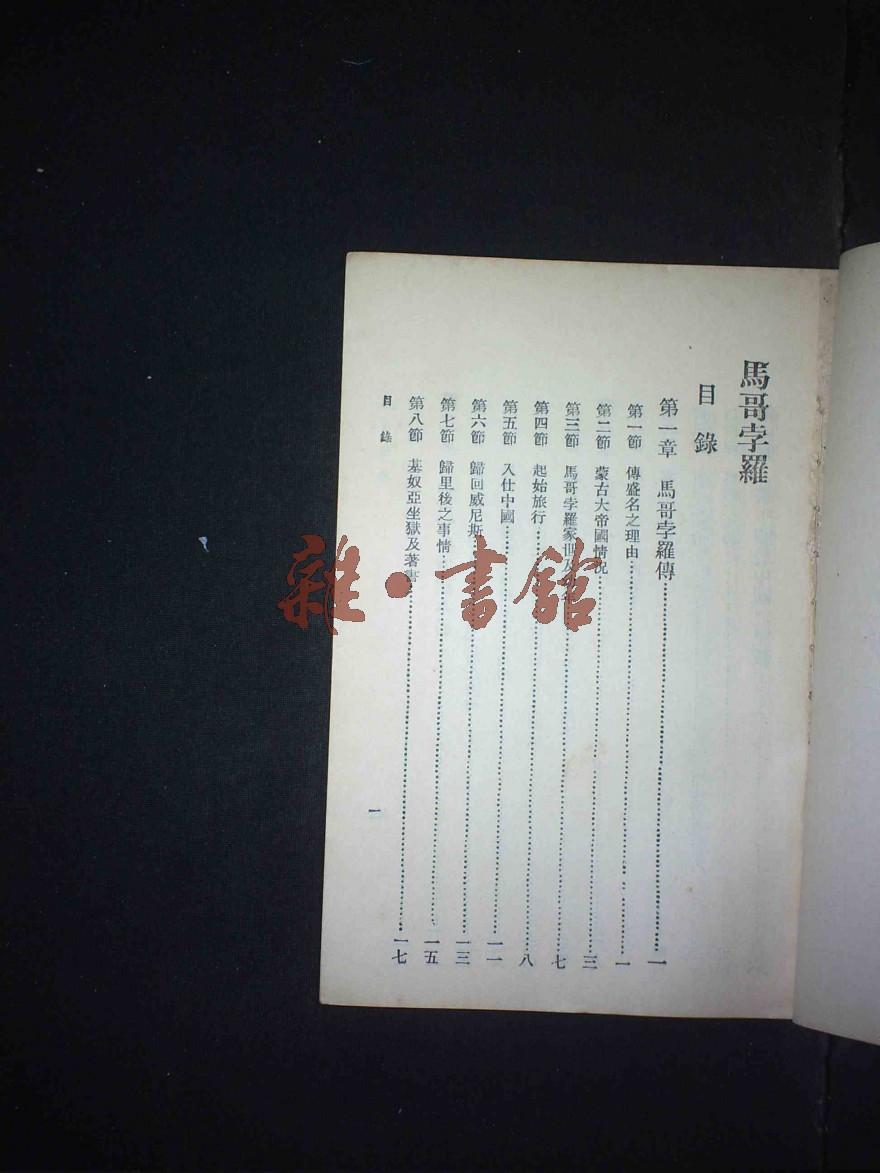 馬哥孛羅
目錄
第一章 馬哥孛羅傳……一
第一節 傳盛名之理由……一
第二節 蒙古大帝國情況……三
第三節 馬哥孛羅家世及……七
第四節 起始旅行……八
第五節 入仕中國……一一
第六節 歸回威尼斯……一三
第七節 歸里後之事情……一五
第八節 基奴亞坐獄及著書……一七
目錄
一
雜·書館